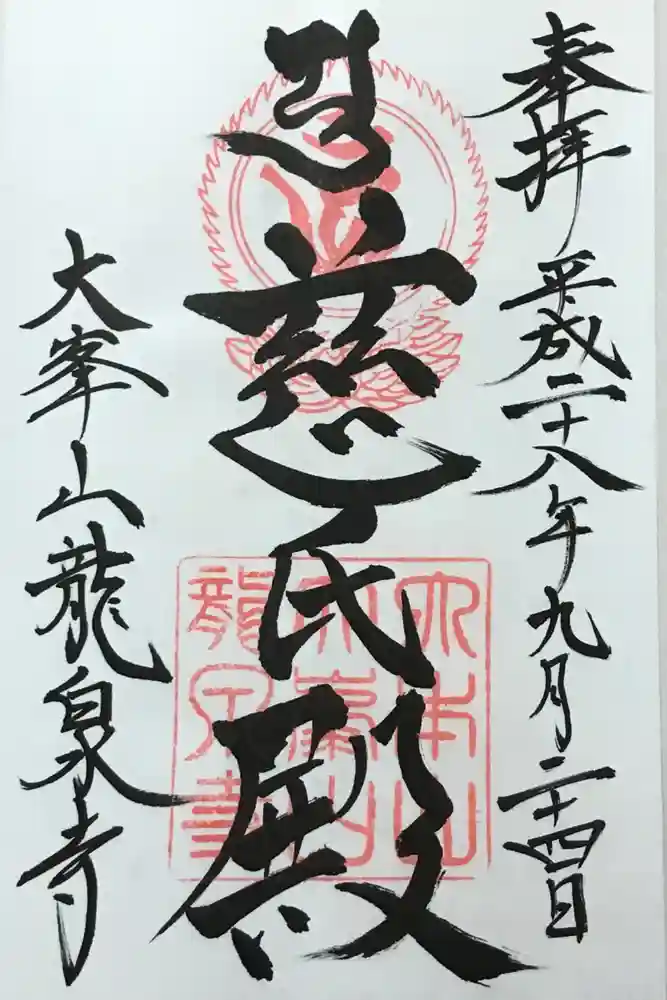 奉拝 平成二十八年九月二十四日
慈氏殿
大峯山龍泉寺
大本山
大峯山
龍泉寺